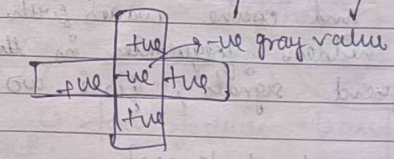 +ve → -ve gray value
+ve -ve +ve
+ve